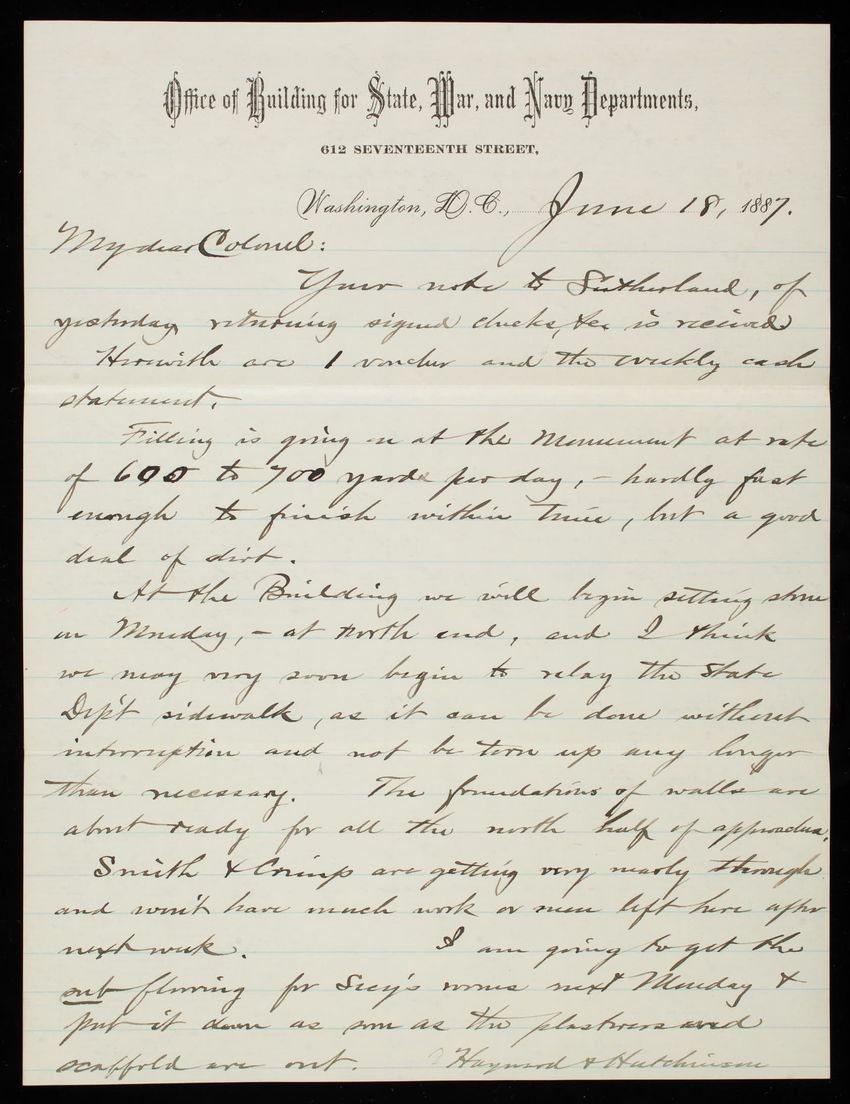 Office of Building for State, War, and Navy Departments,
612 SEVENTEENTH STREET,
Washington, D.C., June 18, 1887.
My dear Colonel:
Your note to Sutherland, of
yesterday returning signed checks, &c. is received.
Herewith are 1 voucher and the weekly cash
statement.
Filling is going on at the Monument at rate
of 600 to 700 yards per day, - hardly fast
enough to finish within time, but a good
deal of dirt.
At the Building we will begin setting stone
on Monday, - at north end, and I think
we may very soon begin to relay the State
Dep't sidewalk, as it can be done without
interruption and not be torn up any longer
than necessary. The foundations of walls are
about ready for all the north half of approaches.
Smith & Crimp are getting very nearly through
and won't have much work or men left here after
next week. I am going to get the
sub flooring for Secy's rooms next Monday &
put it down as soon as the plasterers and
scaffold are out. Hayward & Hutchinson